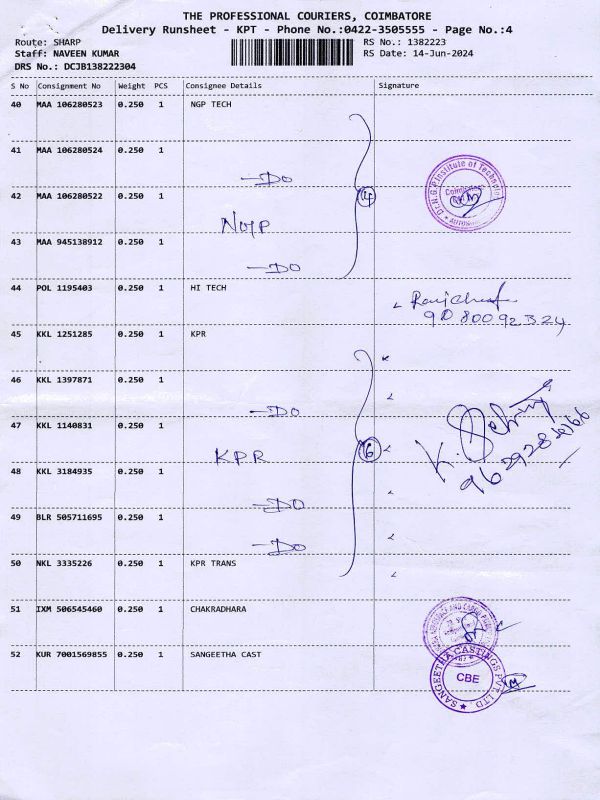 THE PROFESSIONAL COURIERS, COIMBATORE
Delivery Runsheet - KPT - Phone No.:0422-3505555 - Page No.:4
Route: SHARP RS No.: 1382223
Staff: NAVEEN KUMAR RS Date: 14-Jun-2024
DRS No.: DCJB138222304
S No Consignment No Weight PCS Consignee Details Signature
40 MAA 106280523 0.250 1 NGP TECH
41 MAA 106280524 0.250 1
—DO
42 MAA 106280522 0.250 1 4
NGP
43 MAA 945138912 0.250 1
—DO
44 POL 1195403 0.250 1 HI TECH
45 KKL 1251285 0.250 1 KPR
46 KKL 1397871 0.250 1
—DO
47 KKL 1140831 0.250 1
KPR 6
48 KKL 3184935 0.250 1
—DO
49 BLR 505711695 0.250 1
—DO
50 NKL 3335226 0.250 1 KPR TRANS
51 IXM 506545460 0.250 1 CHAKRADHARA
52 KUR 7001569855 0.250 1 SANGEETHA CAST
Dr. N.G.P. Institute of Technology
SANGEETHA CASTINGS PVT. LTD
CBE